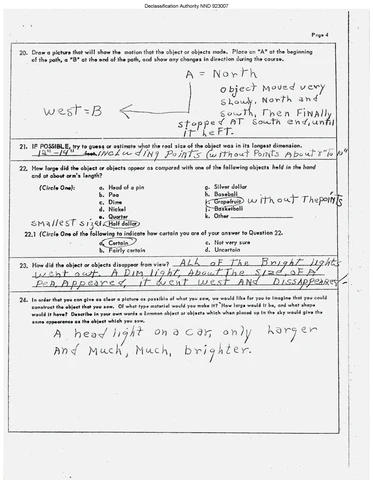 Declassification Authority NND 923007
Page 4
20. Draw a picture that will show the motion that the object or objects made. Place an "A" at the beginning
of the path, a "B" at the end of the path, and show any changes in direction during the course.
A = North
object moved very
slowly. North and
south, Then FiNAlly
stopped AT South end, until
it LeFT.
West = B
21. IF POSSIBLE, try to guess or estimate what the real size of the object was in its longest dimension.
12"-14" INCLUDING POINTS (without Points About 8" To 10"
22. How large did the object or objects appear as compared with one of the following objects held in the hand
and at about arm's length?
(Circle One): a. Head of a pin g. Silver dollar
b. Pea h. Baseball
c. Dime i. Grapefruit without The points
d. Nickel j. Basketball
e. Quarter k. Other
smallest size: f. Half dollar
22.1 (Circle One of the following to indicate how certain you are of your answer to Question 22.
a. Certain c. Not very sure
b. Fairly certain d. Uncertain
23. How did the object or objects disappear from view? ALL OF The Bright lights
went out. A Dim light, About The Size of A
Pea, Appeared, it went west AND DISSAPPEARED.
24. In order that you can give as clear a picture as possible of what you saw, we would like for you to imagine that you could
construct the object that you saw. Of what type material would you make it? How large would it be, and what shape
would it have? Describe in your own words a common object or objects which when placed up in the sky would give the
same appearance as the object which you saw.
A head light on a car, only larger
And Much, Much, brighter.